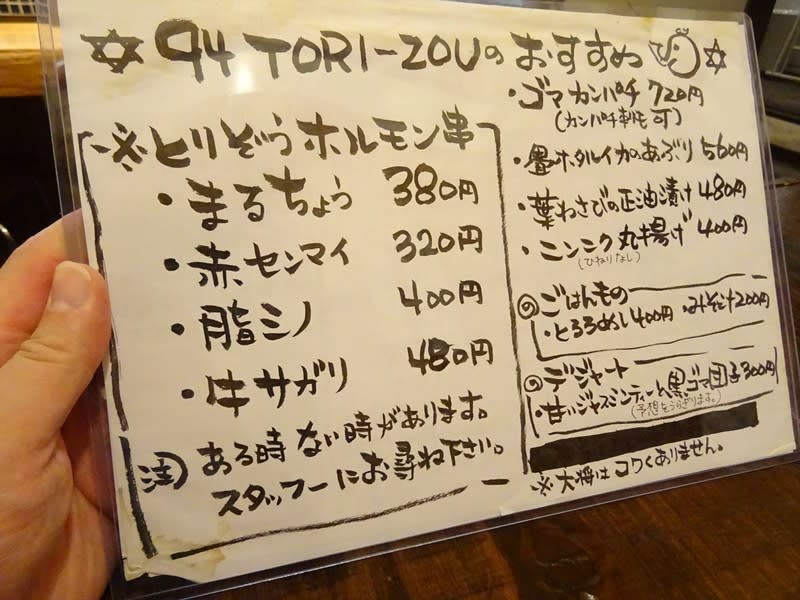 94 TORI-ZOUのおすすめ
※とりぞうホルモン串
・まるちょう 380円
・赤センマイ 320円
・脂ミノ 400円
・牛サガリ 480円
注 ある時ない時があります。
スタッフーにお尋ね下さい。
・ゴマカンパチ 720円
(カンパチ刺モ可)
・畳ホタルイカのあぶり 560円
・葉わさびの正油漬け 480円
・ニンニク丸揚げ 400円
(ひねりなし)
ごはんもの
・とろろめし400円 ・みそ汁200円
デジャート
・甘いジャスミンティーと黒ゴマ団子300円
(予想をうらぎります。)
※大将はコワくありません。